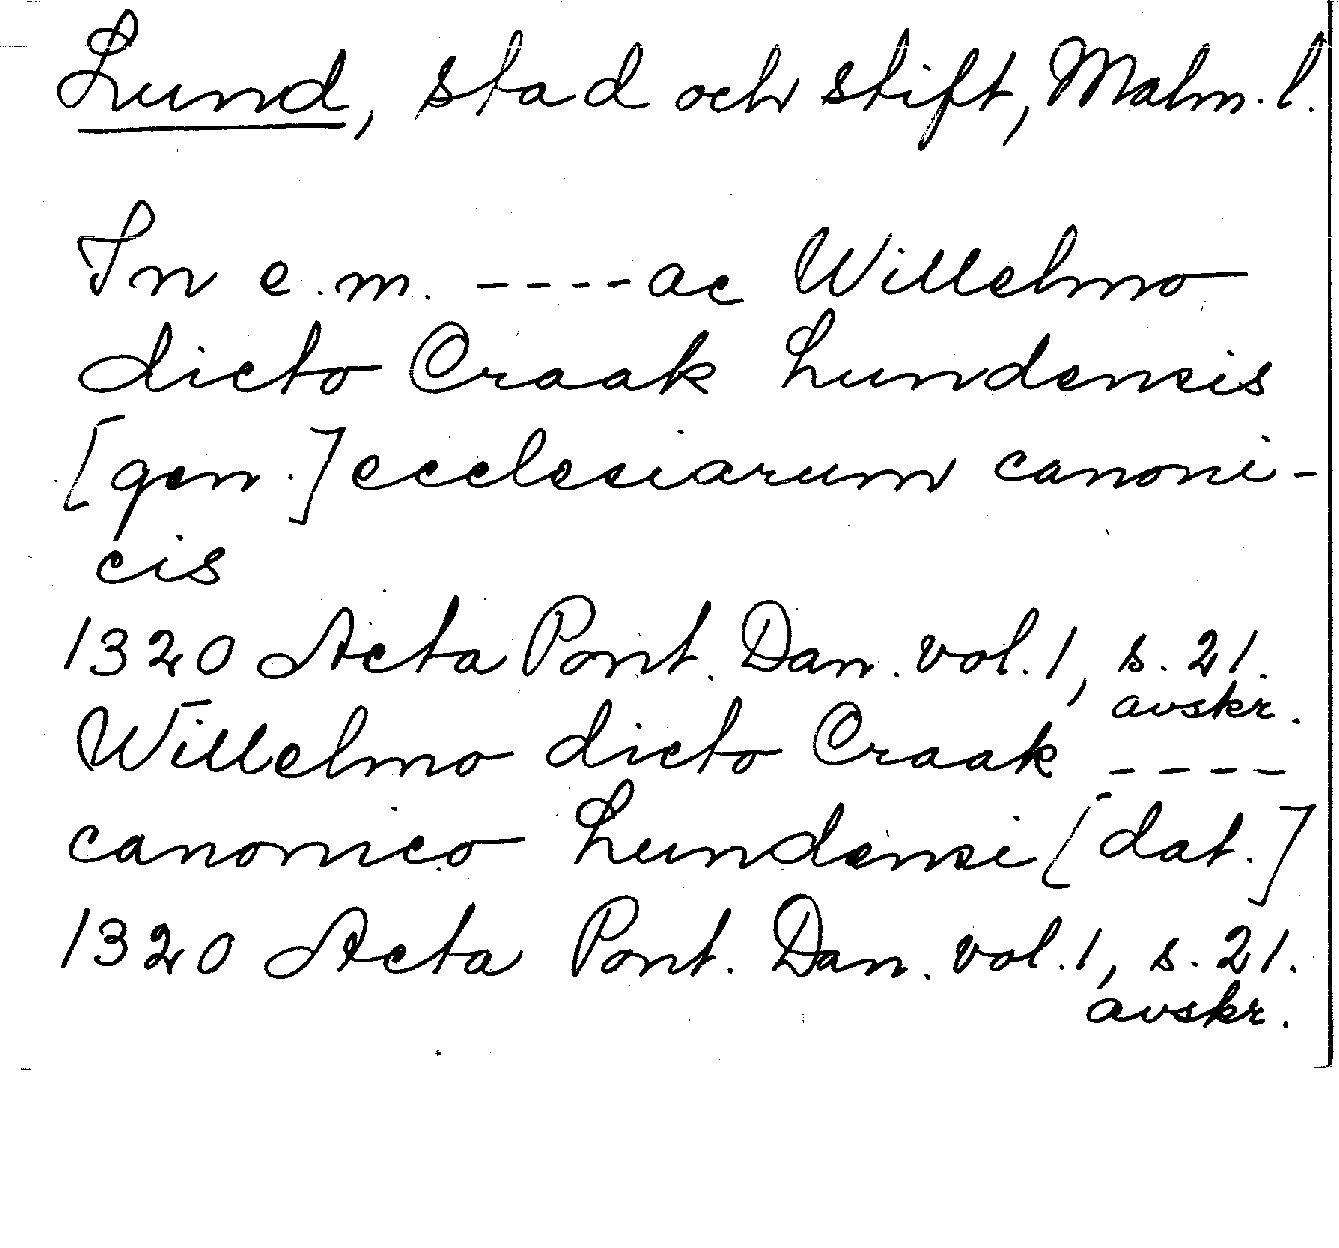 Lund, stad och stift, Malm. l.
In e. m. ---- ac Willelmo
dicto Craak Lundensis
[gen.] ecclesiarum canoni-
cis
1320 Acta Pont. Dan. vol. 1, s. 21.
avskr.
Willelmo dicto Craak ----
canonico Lundensi [dat.]
1320 Acta Pont. Dan. vol. 1, s. 21.
avskr.